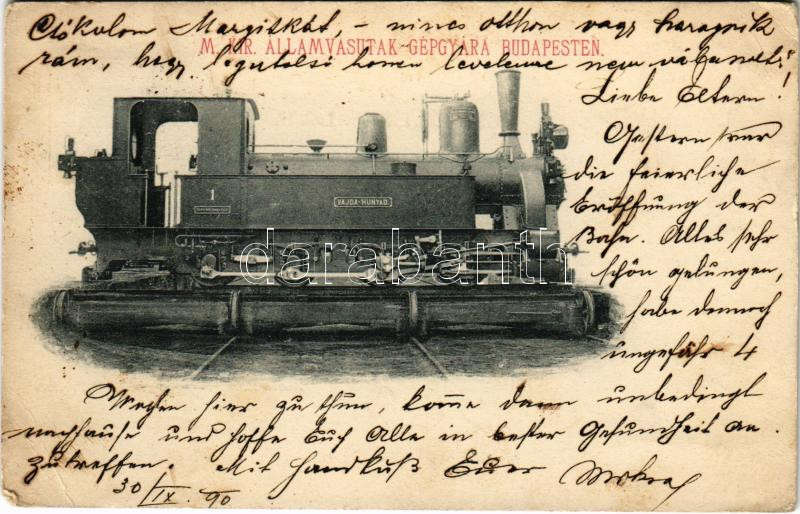 Csókolom Margitkát, – nincs otthon vagy haragszik
M. KIR. ÁLLAMVASUTAK GÉPGYÁRA BUDAPESTEN.
rám, hogy legutolsó honn levelemre nem válaszolt?!
Liebe Eltern!
Gestern war
die feierliche
Eröffnung der
Bahn. Alles sehr
schön gelungen,
habe dennoch
ungefähr 4
1
VAJDA-HUNYAD.
darabanth
Wochen hier zu thun, komme dann unbedingt
nachhause und hoffe Euch Alle in bester Gesundheit an-
zutreffen. Mit Handkuß Euer
30/IX. 90